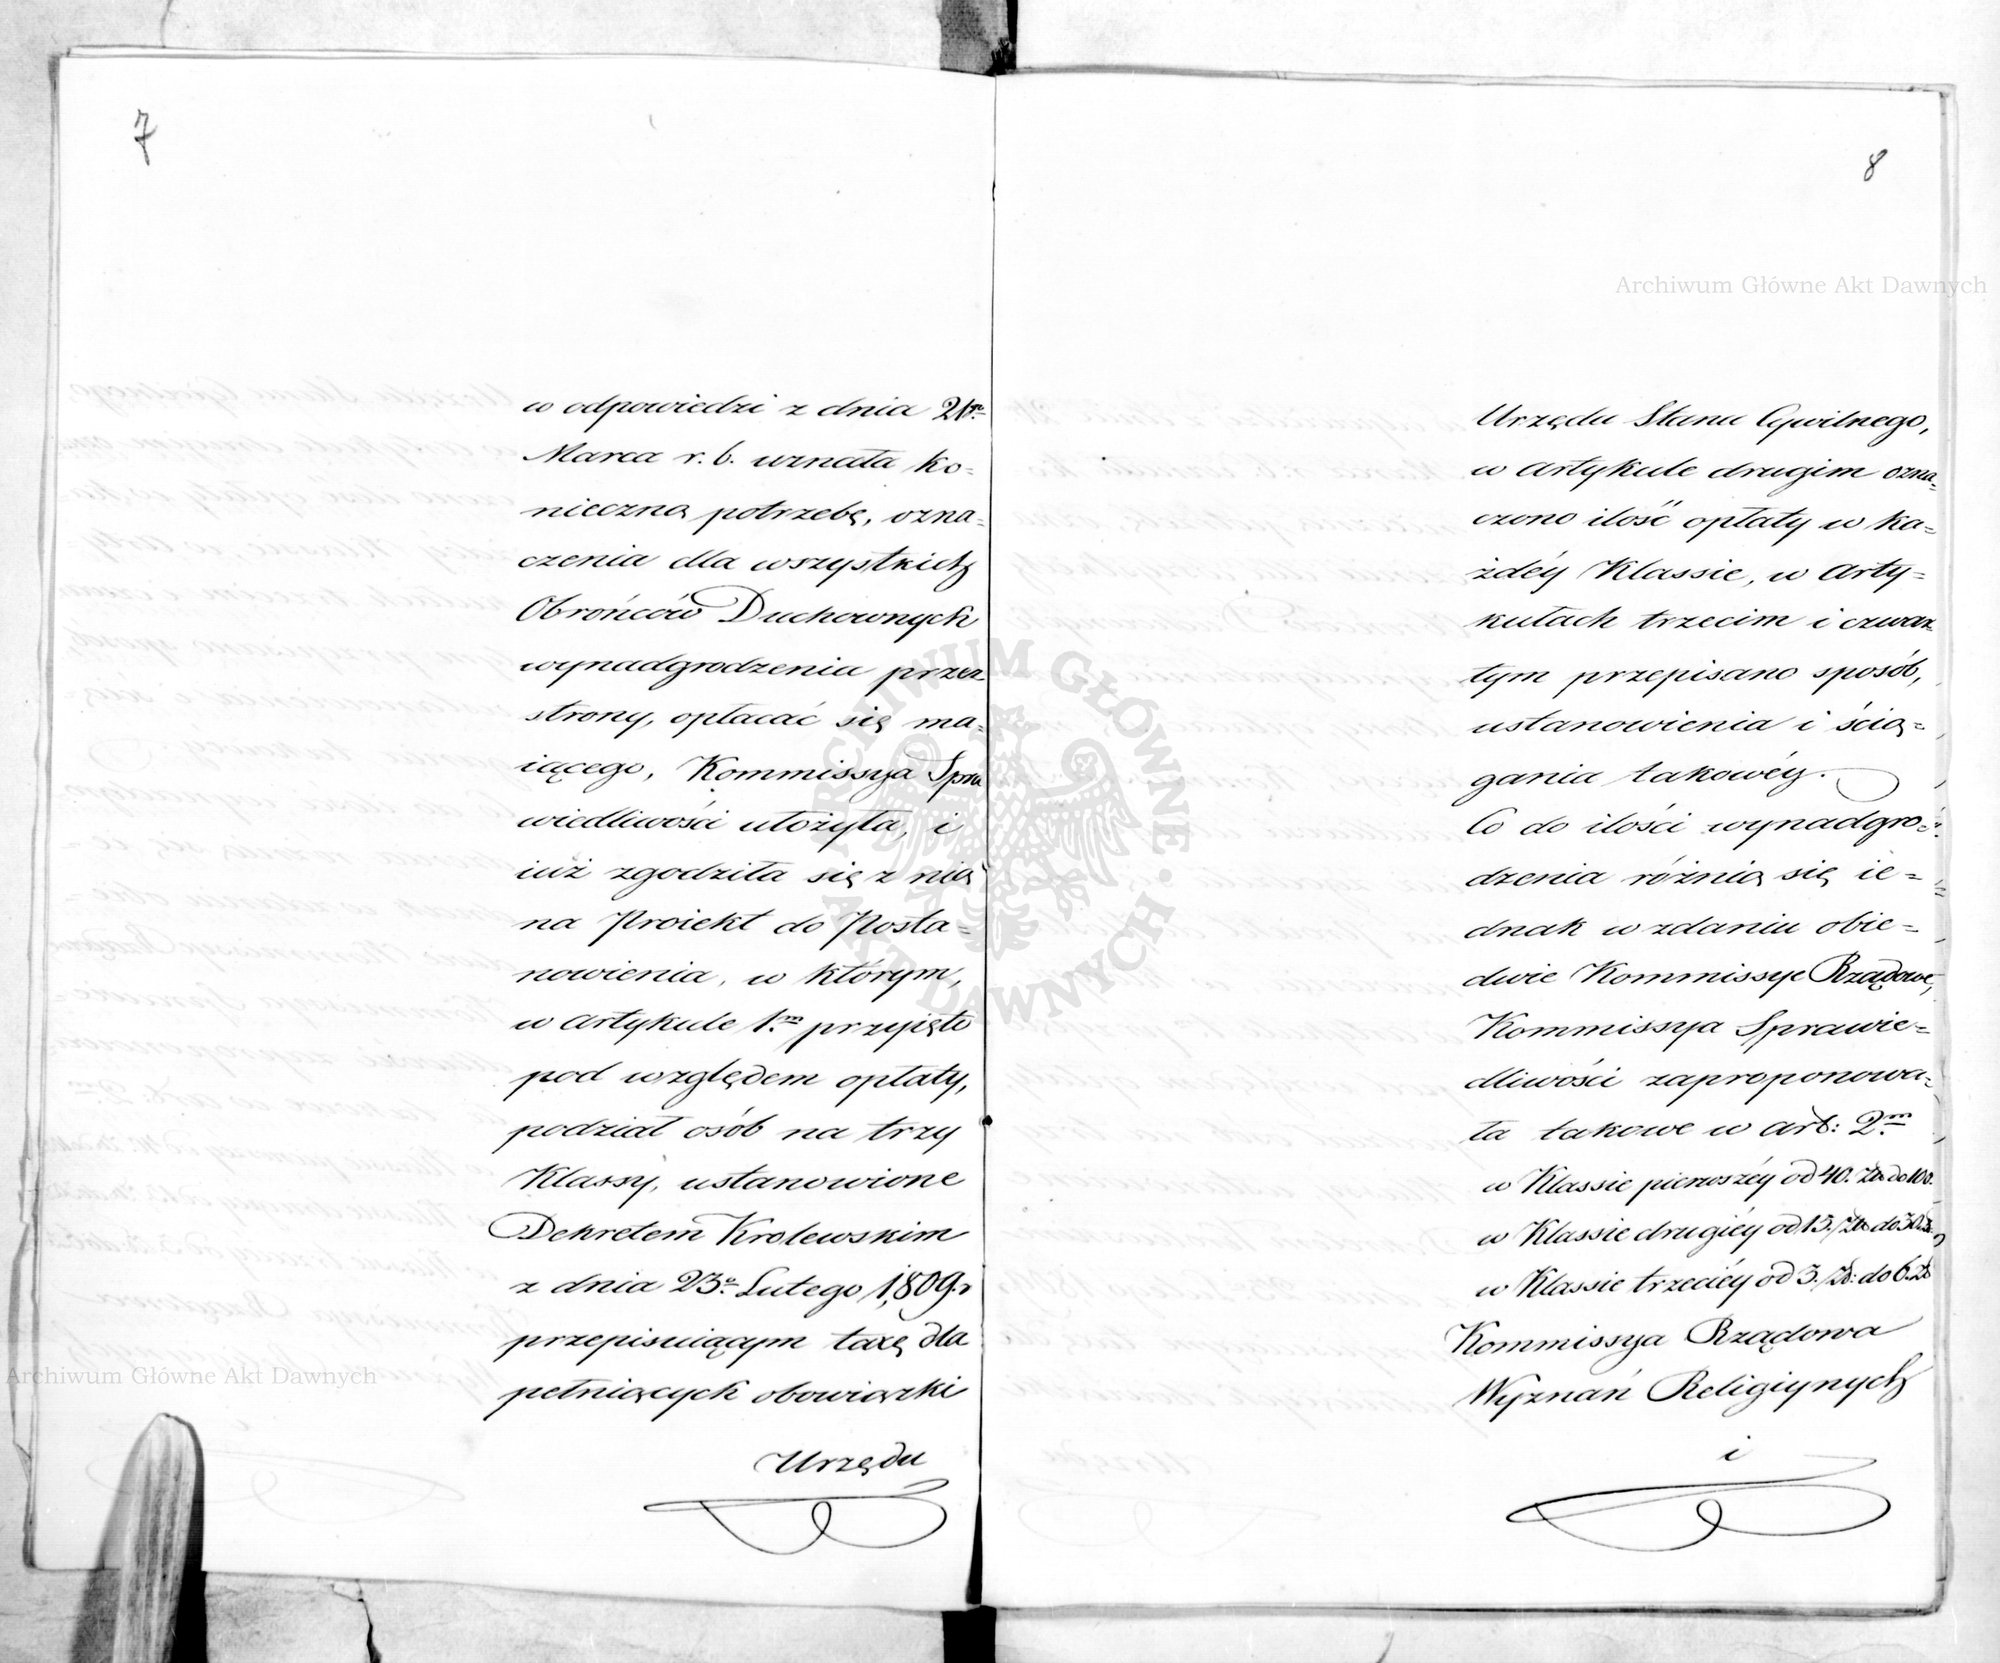 7
w odpowiedzi z dnia 21go
Marca r. b. uznała ko=
nieczną potrzebę, ozna=
czenia dla wszystkich
Obrońców Duchownych
wynadgrodzenia przez
strony, opłacać się ma=
iącego, Kommissya Spra
wiedliwości ułożyła, i
iuż zgodziła się z nią
na Proiekt do Posta=
nowienia, w którym,
w artykule 1.m przyięto
pod względem opłaty,
podział osób na trzy
Klassy, ustanowione
Dekretem Krolewskim
z dnia 23o Lutego 1,809. r
przepisuiącym taxę dla
pełniących obowiązki
Urzędu
8
Urzędu Stanu Cywilnego,
w artykule drugim ozna=
czono ilość opłaty w ka=
żdéy Klassie, w arty=
kułach trzecim i czwar
tym przepisano sposób,
ustanowienia i ścią=
gania takowéy.
Co do ilości wynadgro=
dzenia różnią się ie=
dnak w zdaniu obie=
dwie Kommissye Rządowe,
Kommissya Sprawie=
dliwości zaproponowa=
ła takowe w art: 2.m
w Klassie pierwszéy od 40. Zł do 100.
w Klassie drugiéy od 15. Zł do 30. Zł.
w Klassie trzeciéy od 3. Zł: do 6. Zł
Kommissya Rządowa
Wyznań Religiynych
i
Archiwum Główne Akt Dawnych
Archiwum Główne Akt Dawnych
ARCHIWUM GŁÓWNE AKT DAWNYCH